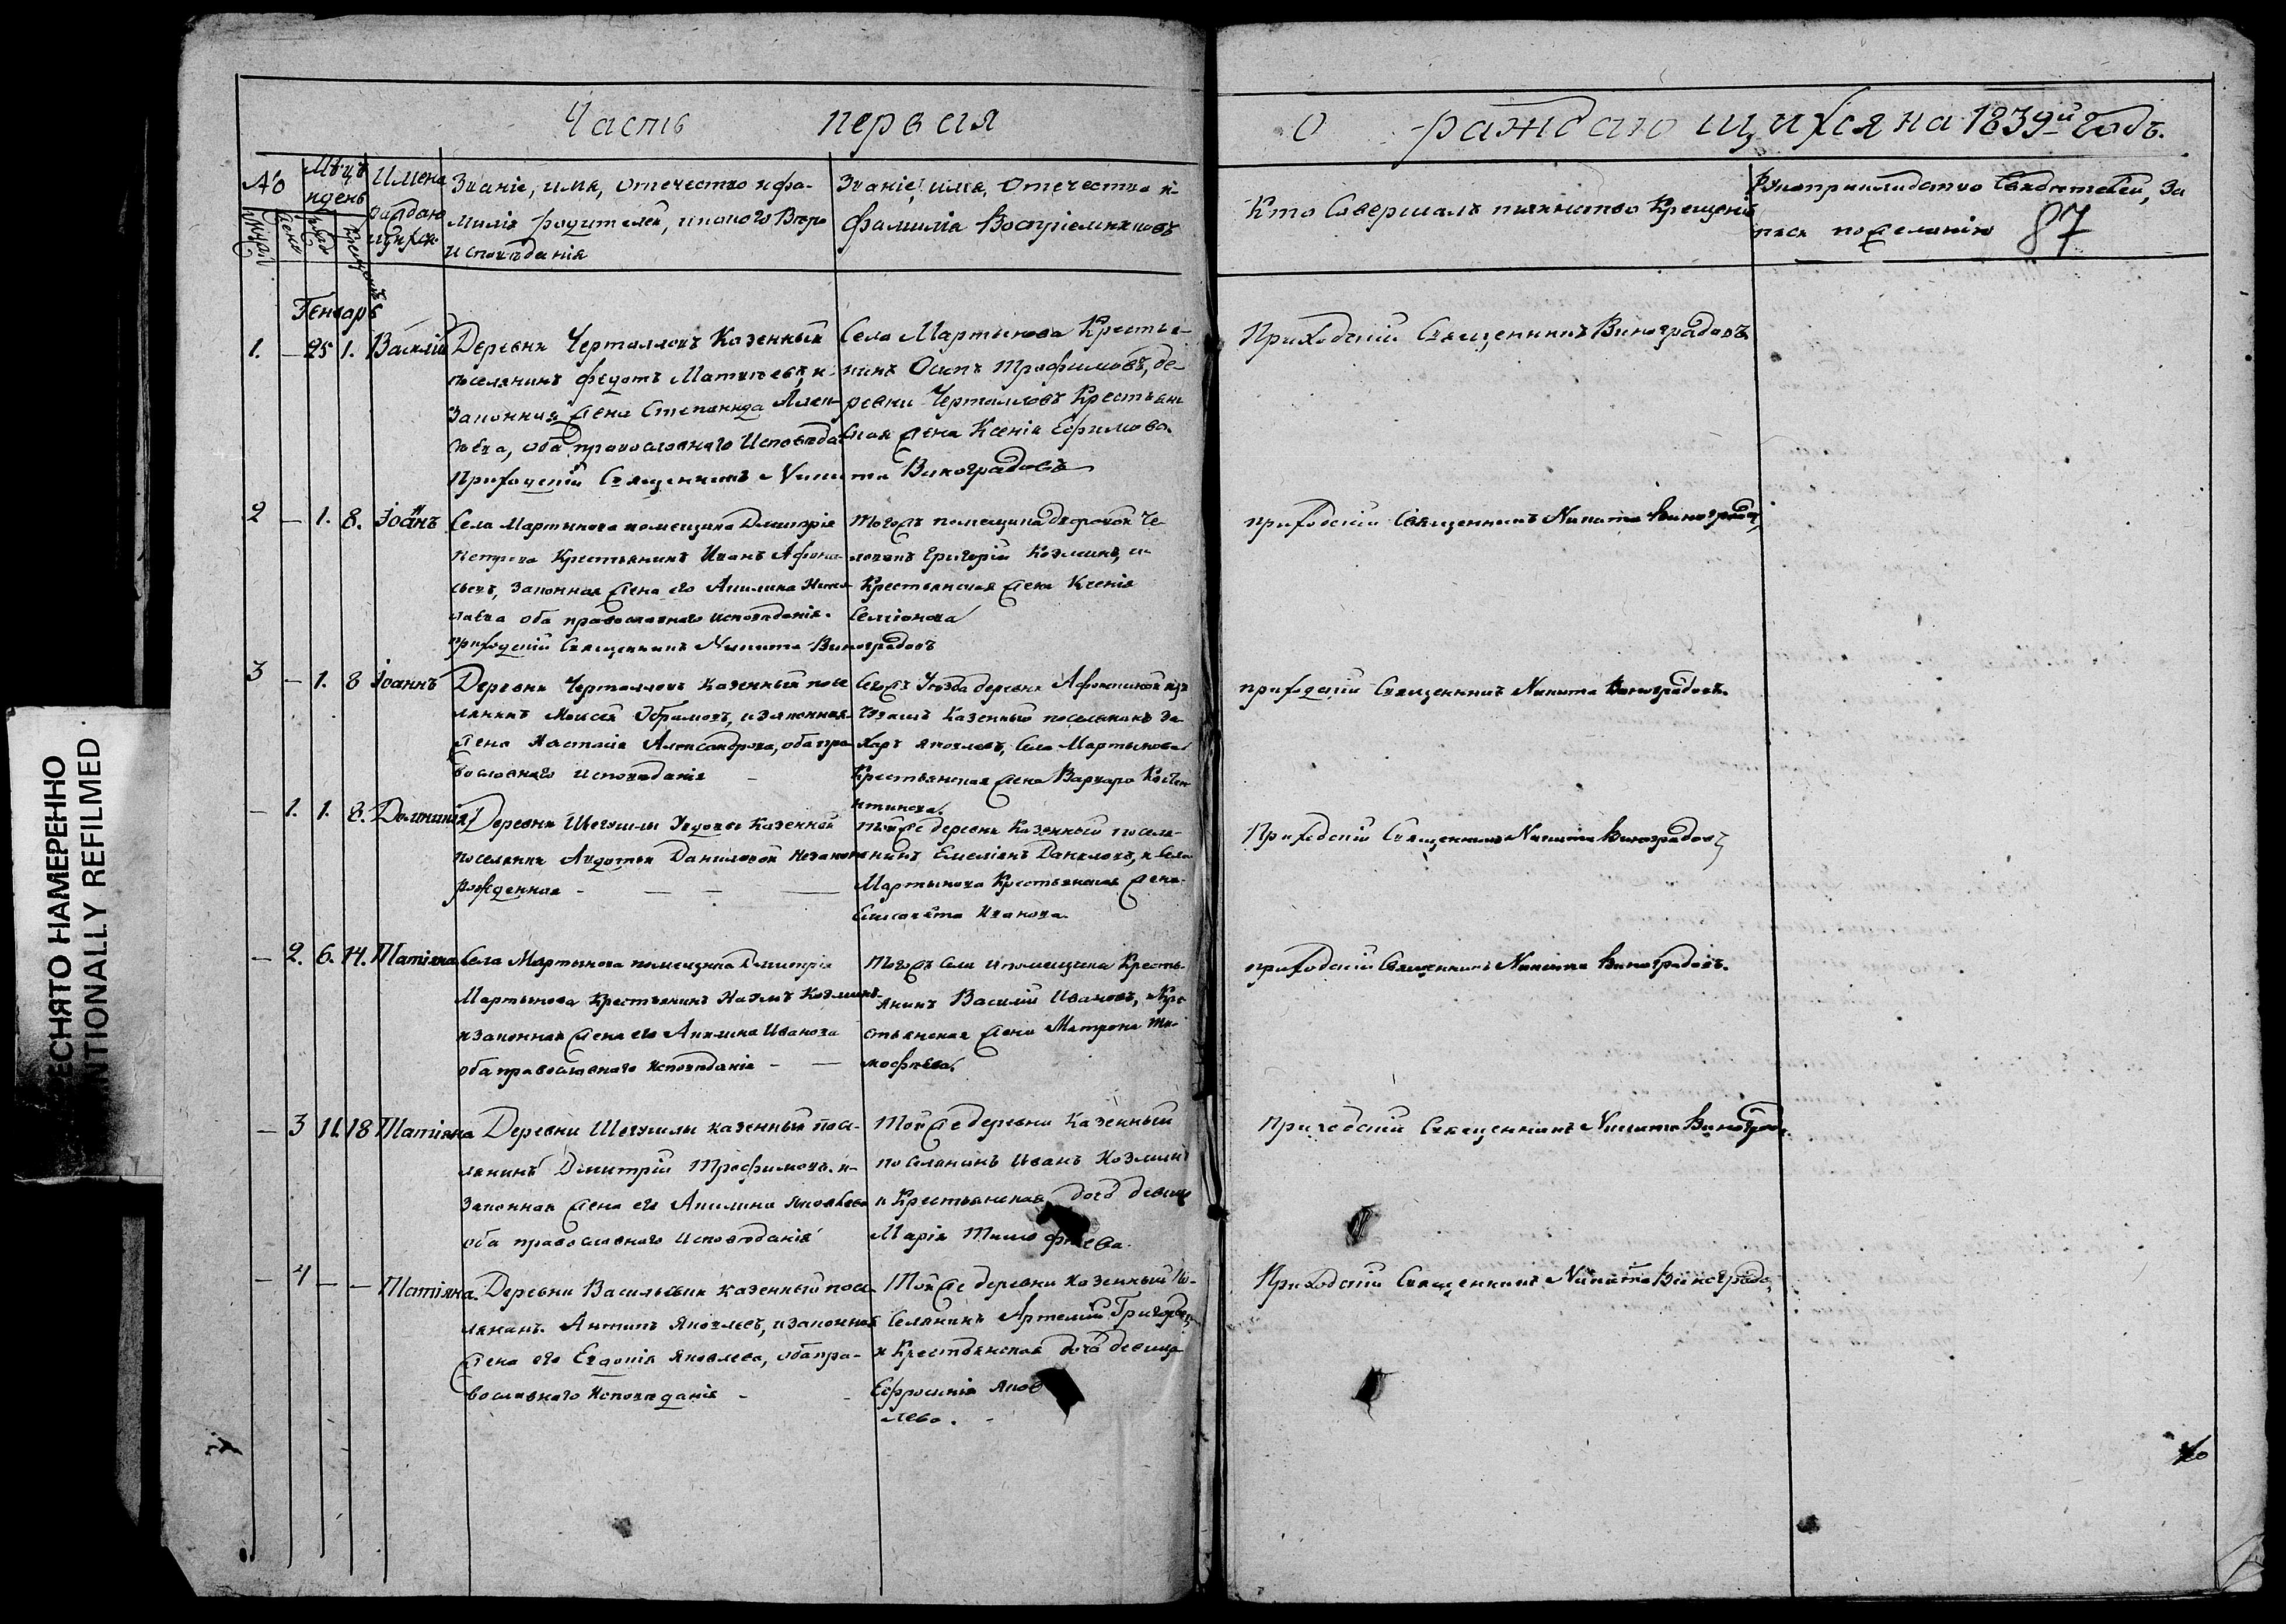 Часть первая
о раждающихся на 1839й Годъ.
№
Мѣцъ и день
Имена раждаю щихся
Званіе, имя, отечество и фа-
милія родителей, и какого Вѣро
исповѣданія
Званіе, имя, Отечество и
фамилія Воспріемниковъ
Кто Совершалъ таинство Крещенія
Рукоприкладство Свидѣтелей, За
писи по желанію
87
Генварь
1. — 25 1. Василій
Деревни Черталловъ Казенный
поселянинъ Федотъ Матвѣевъ, и
Законная жена Степанида Алек
сѣева, оба православнаго Исповѣда
Приходскій Священникъ Никита Виноградовъ
Села Мартынова Крестья-
нинъ Осипъ Трофимовъ, де-
ревни Черталловъ Крестьян
ская жена Ксенія Ефимова.
Приходскій Священникъ Виноградовъ
2 — 1. 8. Іоаннъ
Села Мартынова помещика Дмитрія
Петрова Крестьянинъ Иванъ Афона
сьевъ, Законная жена его Акилина
оба православнаго исповѣданія.
приходскій Священникъ Никита Виноградовъ
Тогожъ помещика дворовой Че
ловѣкъ Григорій Козминъ, и
Крестьянская жена Ксенія
Семіонова
приходскій Священникъ Никита Виноградов
3 — 1. 8 Іоаннъ
Деревни Черталловъ Казенный посе
лянинъ Моисей Абрамовъ, и законная
жена Настасія Александрова, оба пра
вославнаго исповѣданія —
Сегожъ Уѣзда деревни
Казенный поселянинъ За
харъ Яковлевъ, Села Мартынова
Крестьянская жена Варвара Костен
тинова.
приходскій Священникъ Никита Виноградовъ.
— 1. 1. 8. Домникія
Деревни Шегушли Удовы Казенной
поселянки Авдотьи Даниловой Незаконно
рожденная —
Тойже деревни Казенный поселя-
нинъ Емеліянъ Даниловъ, и Села
Мартынова Крестьянская жена
Елисавета Иванова.
Приходскій Священникъ Никита Виноградов
— 2. 6. 14. Татіяна
Села Мартынова помещика Дмитрія
Мартынова Крестьянинъ Наумъ Козминъ
и законная жена его Акилина Иванова
оба православнаго Исповѣданія —
Тогожъ Села и помещика Кресть-
янинъ Василій Ивановъ, и Кре
стьянская жена Матрона Ти-
мофѣева.
приходскій Священникъ Никита Виноградовъ.
— 3 11. 18 Татіяна
Деревни Шегушли казенный посе-
лянинъ Дмитрій Трофимовъ, и
Законная жена его Акилина Яковлева
оба православнаго Исповѣданія
Тойже деревни Казенный
поселянинъ Иванъ Козминъ
и Крестьянская дочь девица
Марія Тимофѣева.
Приходскій Священникъ Никита Виноградов
— 4 — — Татіяна.
Деревни Васильевки казенный посе
лянинъ Антипъ Яковлевъ, и законная
жена его Евдокія Яковлева, оба пра-
вославнаго Исповѣданія —
Тойже деревни Казенный По-
Селянинъ Артемій Григорьев
и Крестьянская дочь девица
Ефросинія Яков
лева.
Приходскій Священникъ Никита Виноградо
ЕСНЯТО НАМЕРЕННО
NTIONALLY REFILMED